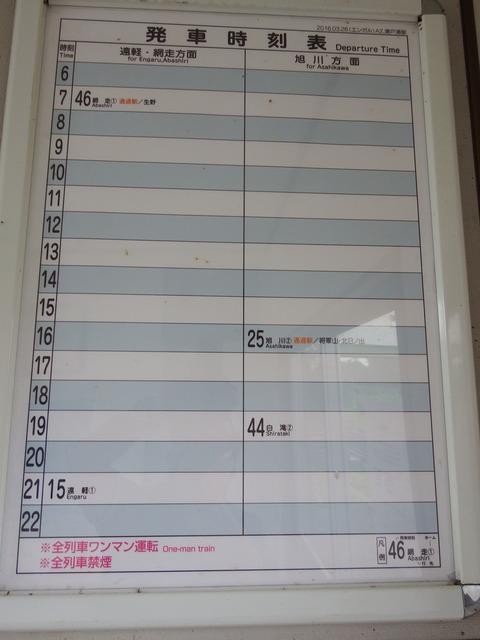 2016.03.26(エンガル)A2_瀬戸瀬駅
発車時刻表 Departure Time
時刻 Time
遠軽・網走方面 for Engaru,Abashiri
旭川方面 for Asahikawa
6
7 46 網走① Abashiri 通過駅/生野
8
9
10
11
12
13
14
15
16 25 旭川② Asahikawa 通過駅/将軍山・北日ノ出
17
18
19 44 白滝② Shirataki
20
21 15 遠軽① Engaru
22
※全列車ワンマン運転 One-man train
※全列車禁煙
凡例 46 網走① Abashiri
発車時刻 ホーム
行先